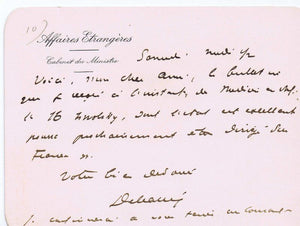 Affaires Etrangères
Cabinet du Ministre
Samedi midi ½
Voici, mon cher ami, le bulletin
que je reçois à l'instant, du Médecin en chef.
le 16 dont l'état est excellent
pourra prochainement être dirigé sur
France
Votre bien dévoué
Delcassé
Je continuerai à vous tenir au courant